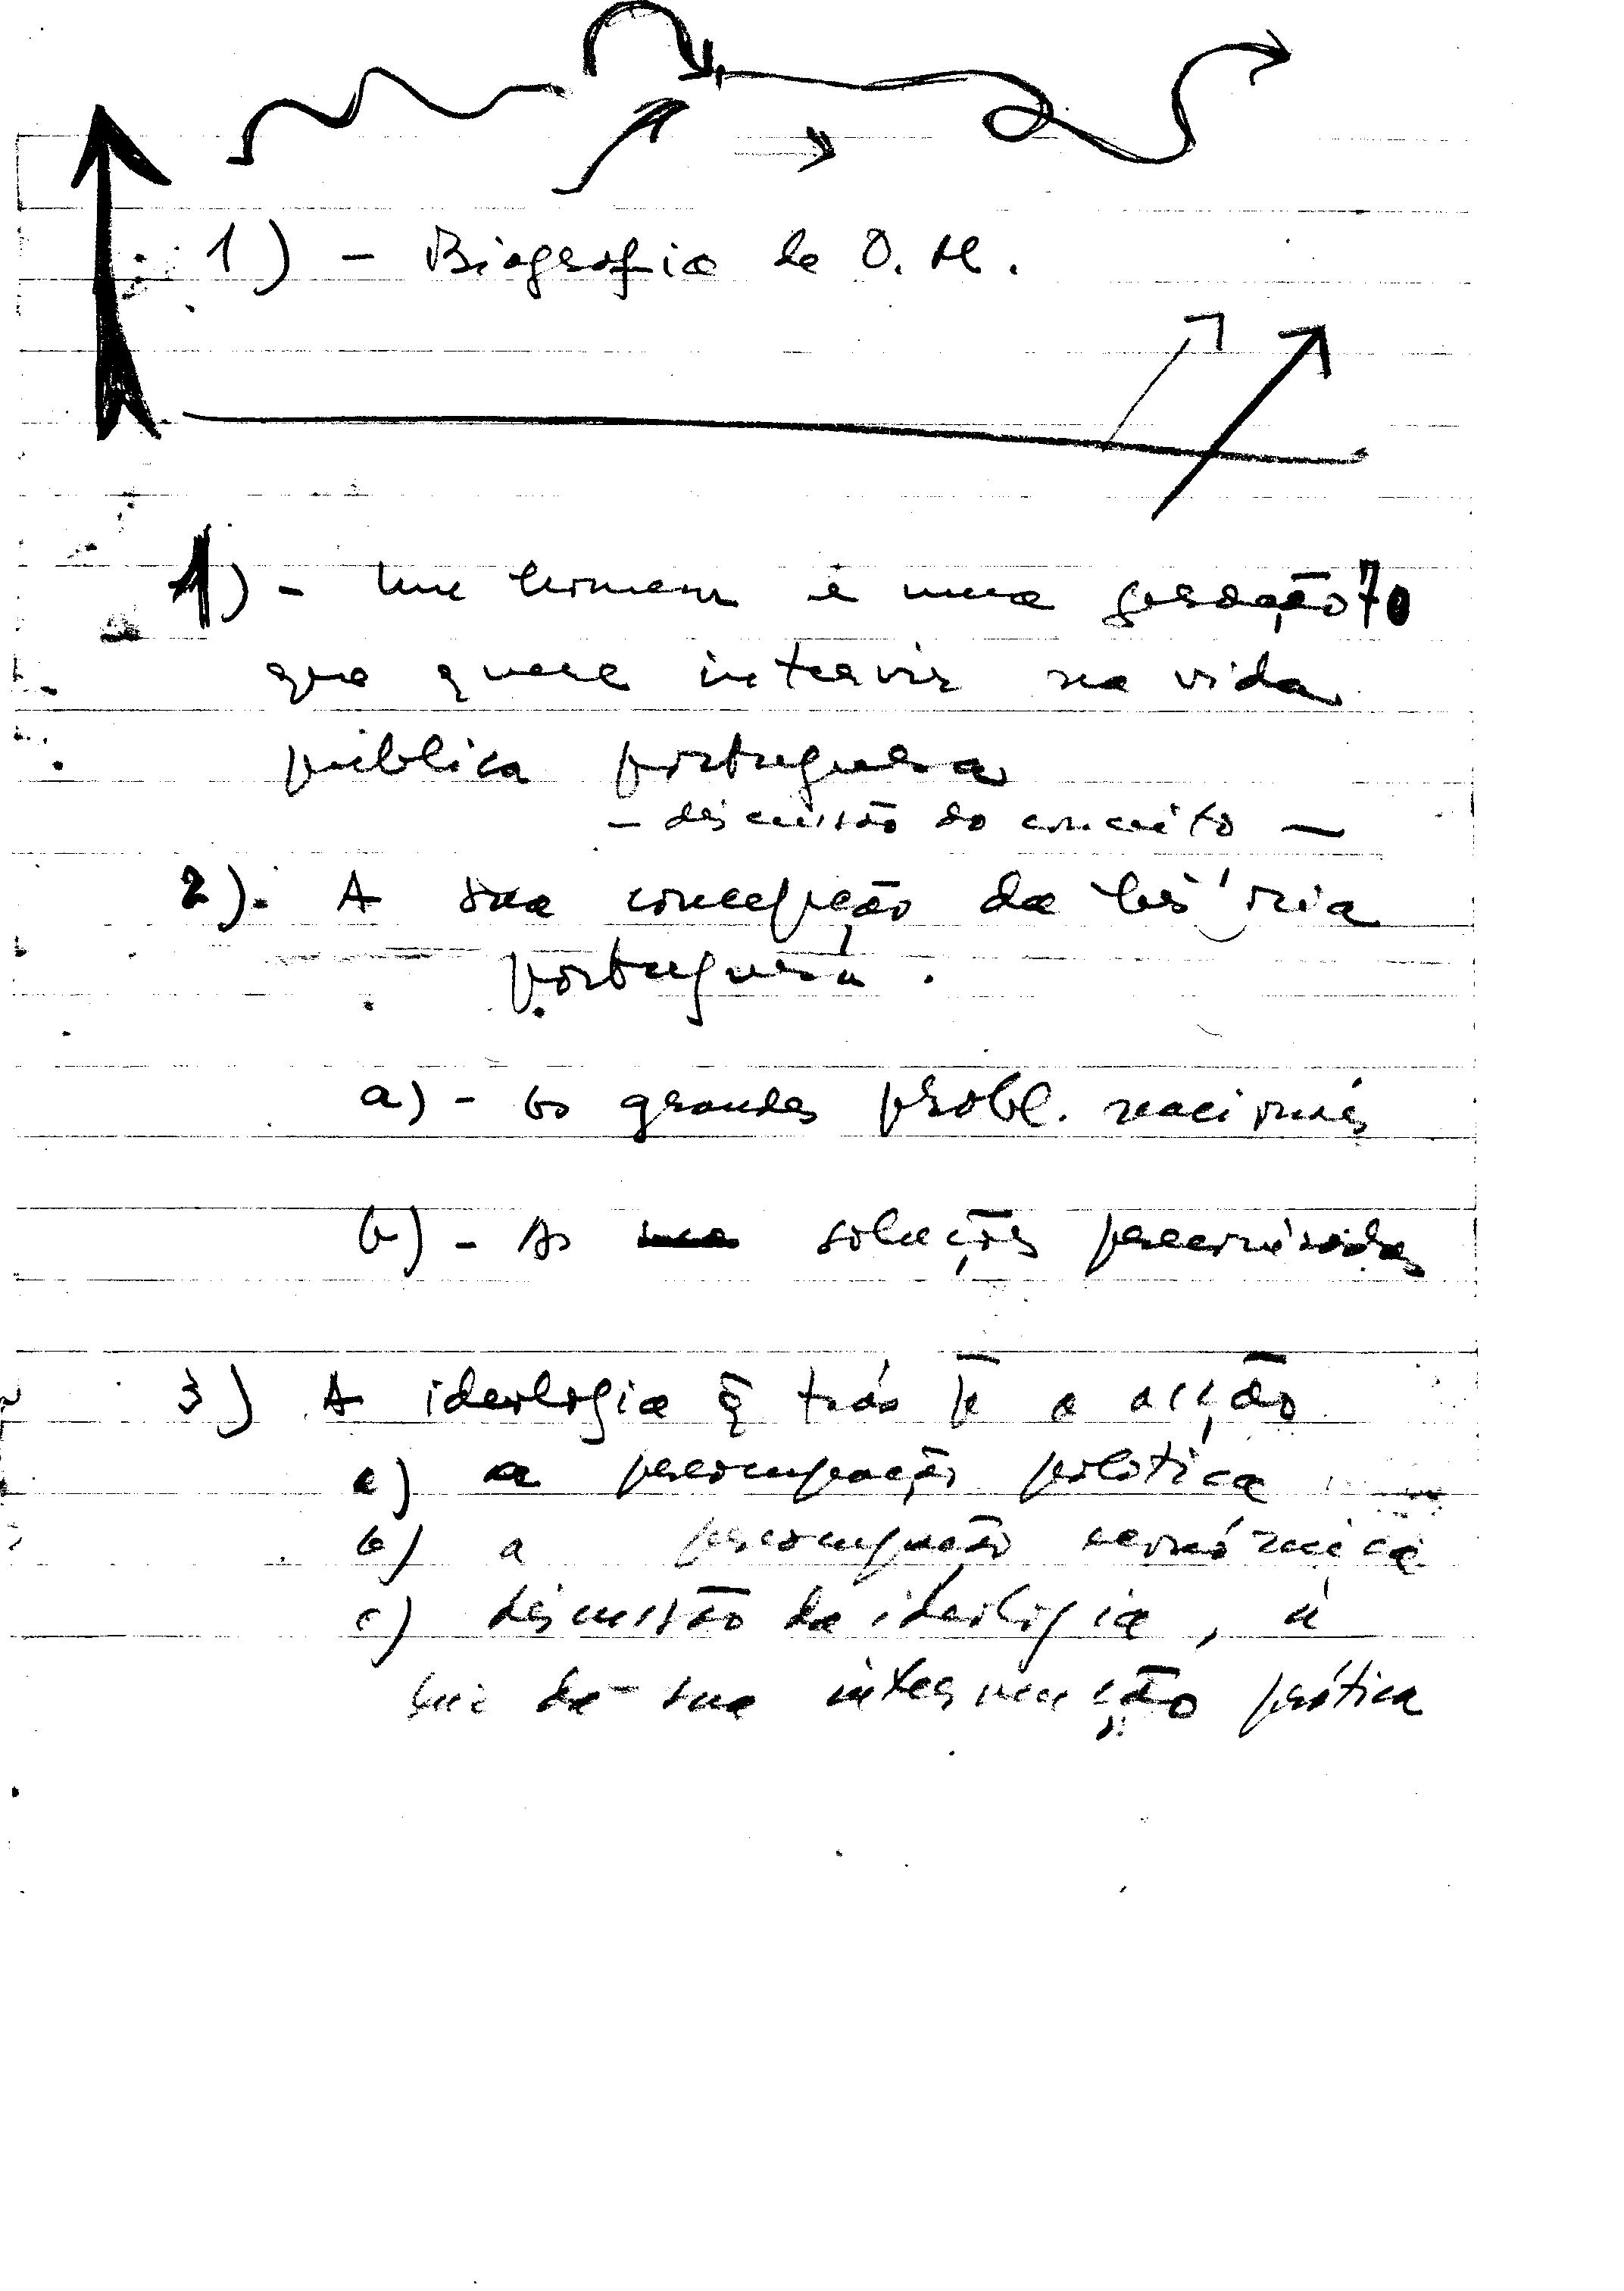 1) - Biografia de O. M.
1) - Um homem e uma geração 70
que quere intervir na vida
pública portuguesa
- discussão do conceito -
2). A sua concepção da história
portuguesa.
a) - Os grandes probl. nacionais
b) - As soluções preconizadas
3) A ideologia q̃ trás p̄ a acção
a) a preocupação política
b) a preocupação económica
c) discussão da ideologia, à
luz da sua intervenção prática